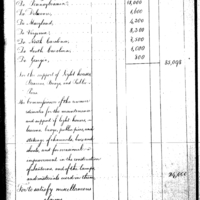 To Pennsylvania. 18,000
To Delaware 1,600
To Maryland, 4,200
To Virginia, 8,200
To North Carolina, 7,500
To South Carolina, 5,000
To Georgia, 300
For the support of light houses,
Beacons, Buoys and Public
Piers
the maintenance
and support of light houses,
beacons, buoys, public piers, and
stakeage of channels, bars and
shoals, and for
improvement in the construction
of lanterns, and of the lamps
and materials used in them,
24,000
For to satisfy miscellaneous
claims